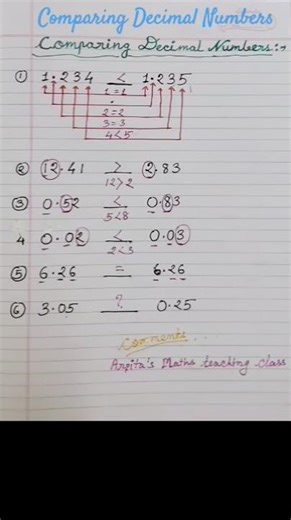 Comparing Decimal Numbers
Comparing Decimal Numbers:-
① 1.234 < 1.235
1=1
.
2=2
3=3
4<5
② 12.41 > 2.83
12>2
③ 0.52 < 0.83
5<8
4 0.02 < 0.03
2<3
⑤ 6.26 = 6.26
⑥ 3.05 ? 0.25
Comments...
Arpita's Maths teaching class